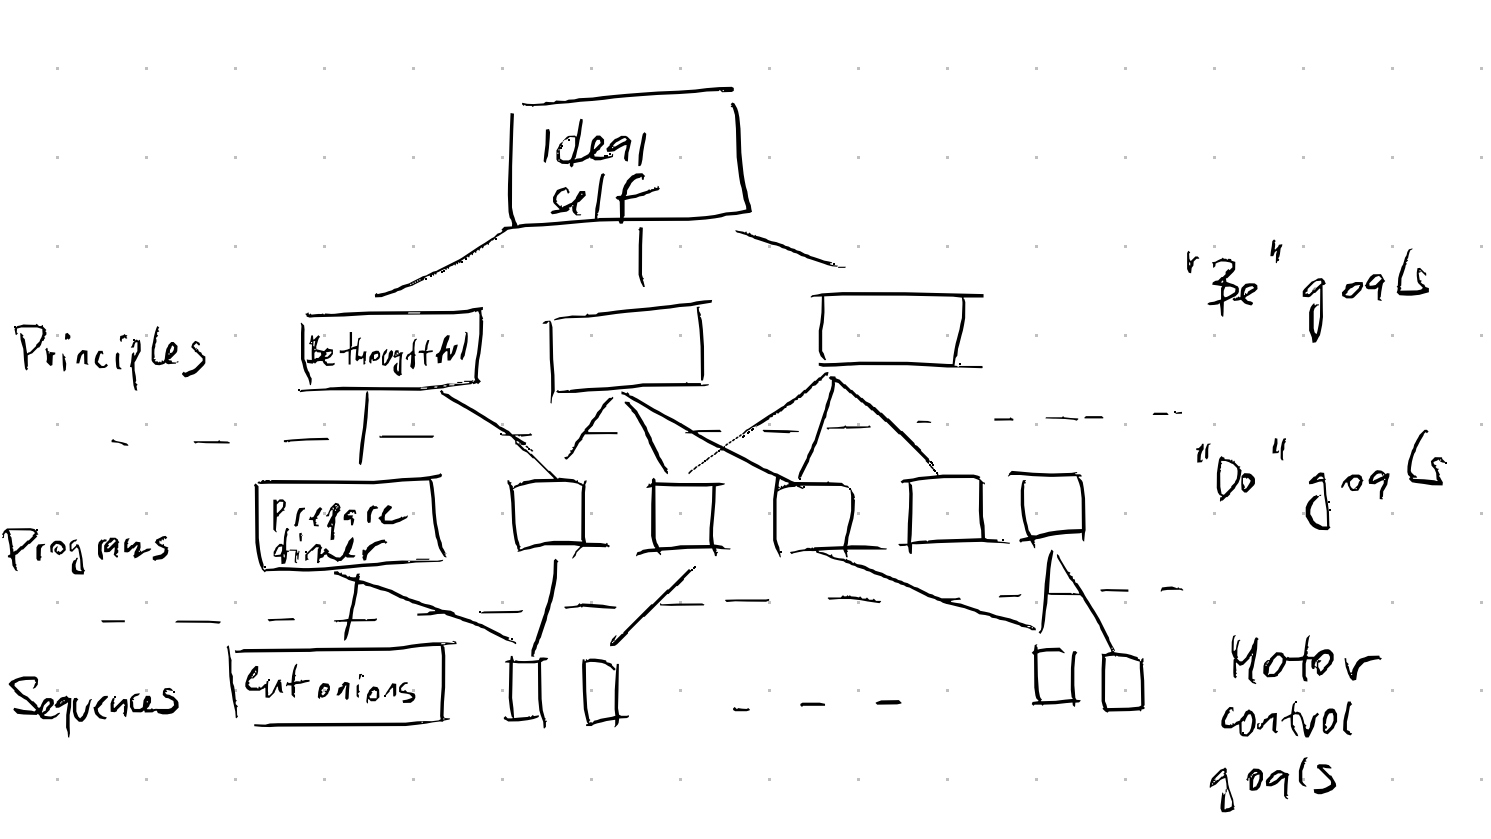 Ideal
self
"Be" goals
Principles
Be thoughtful
"Do" goals
Prepare
dinner
Programs
Sequences
cut onions
Motor
control
goals